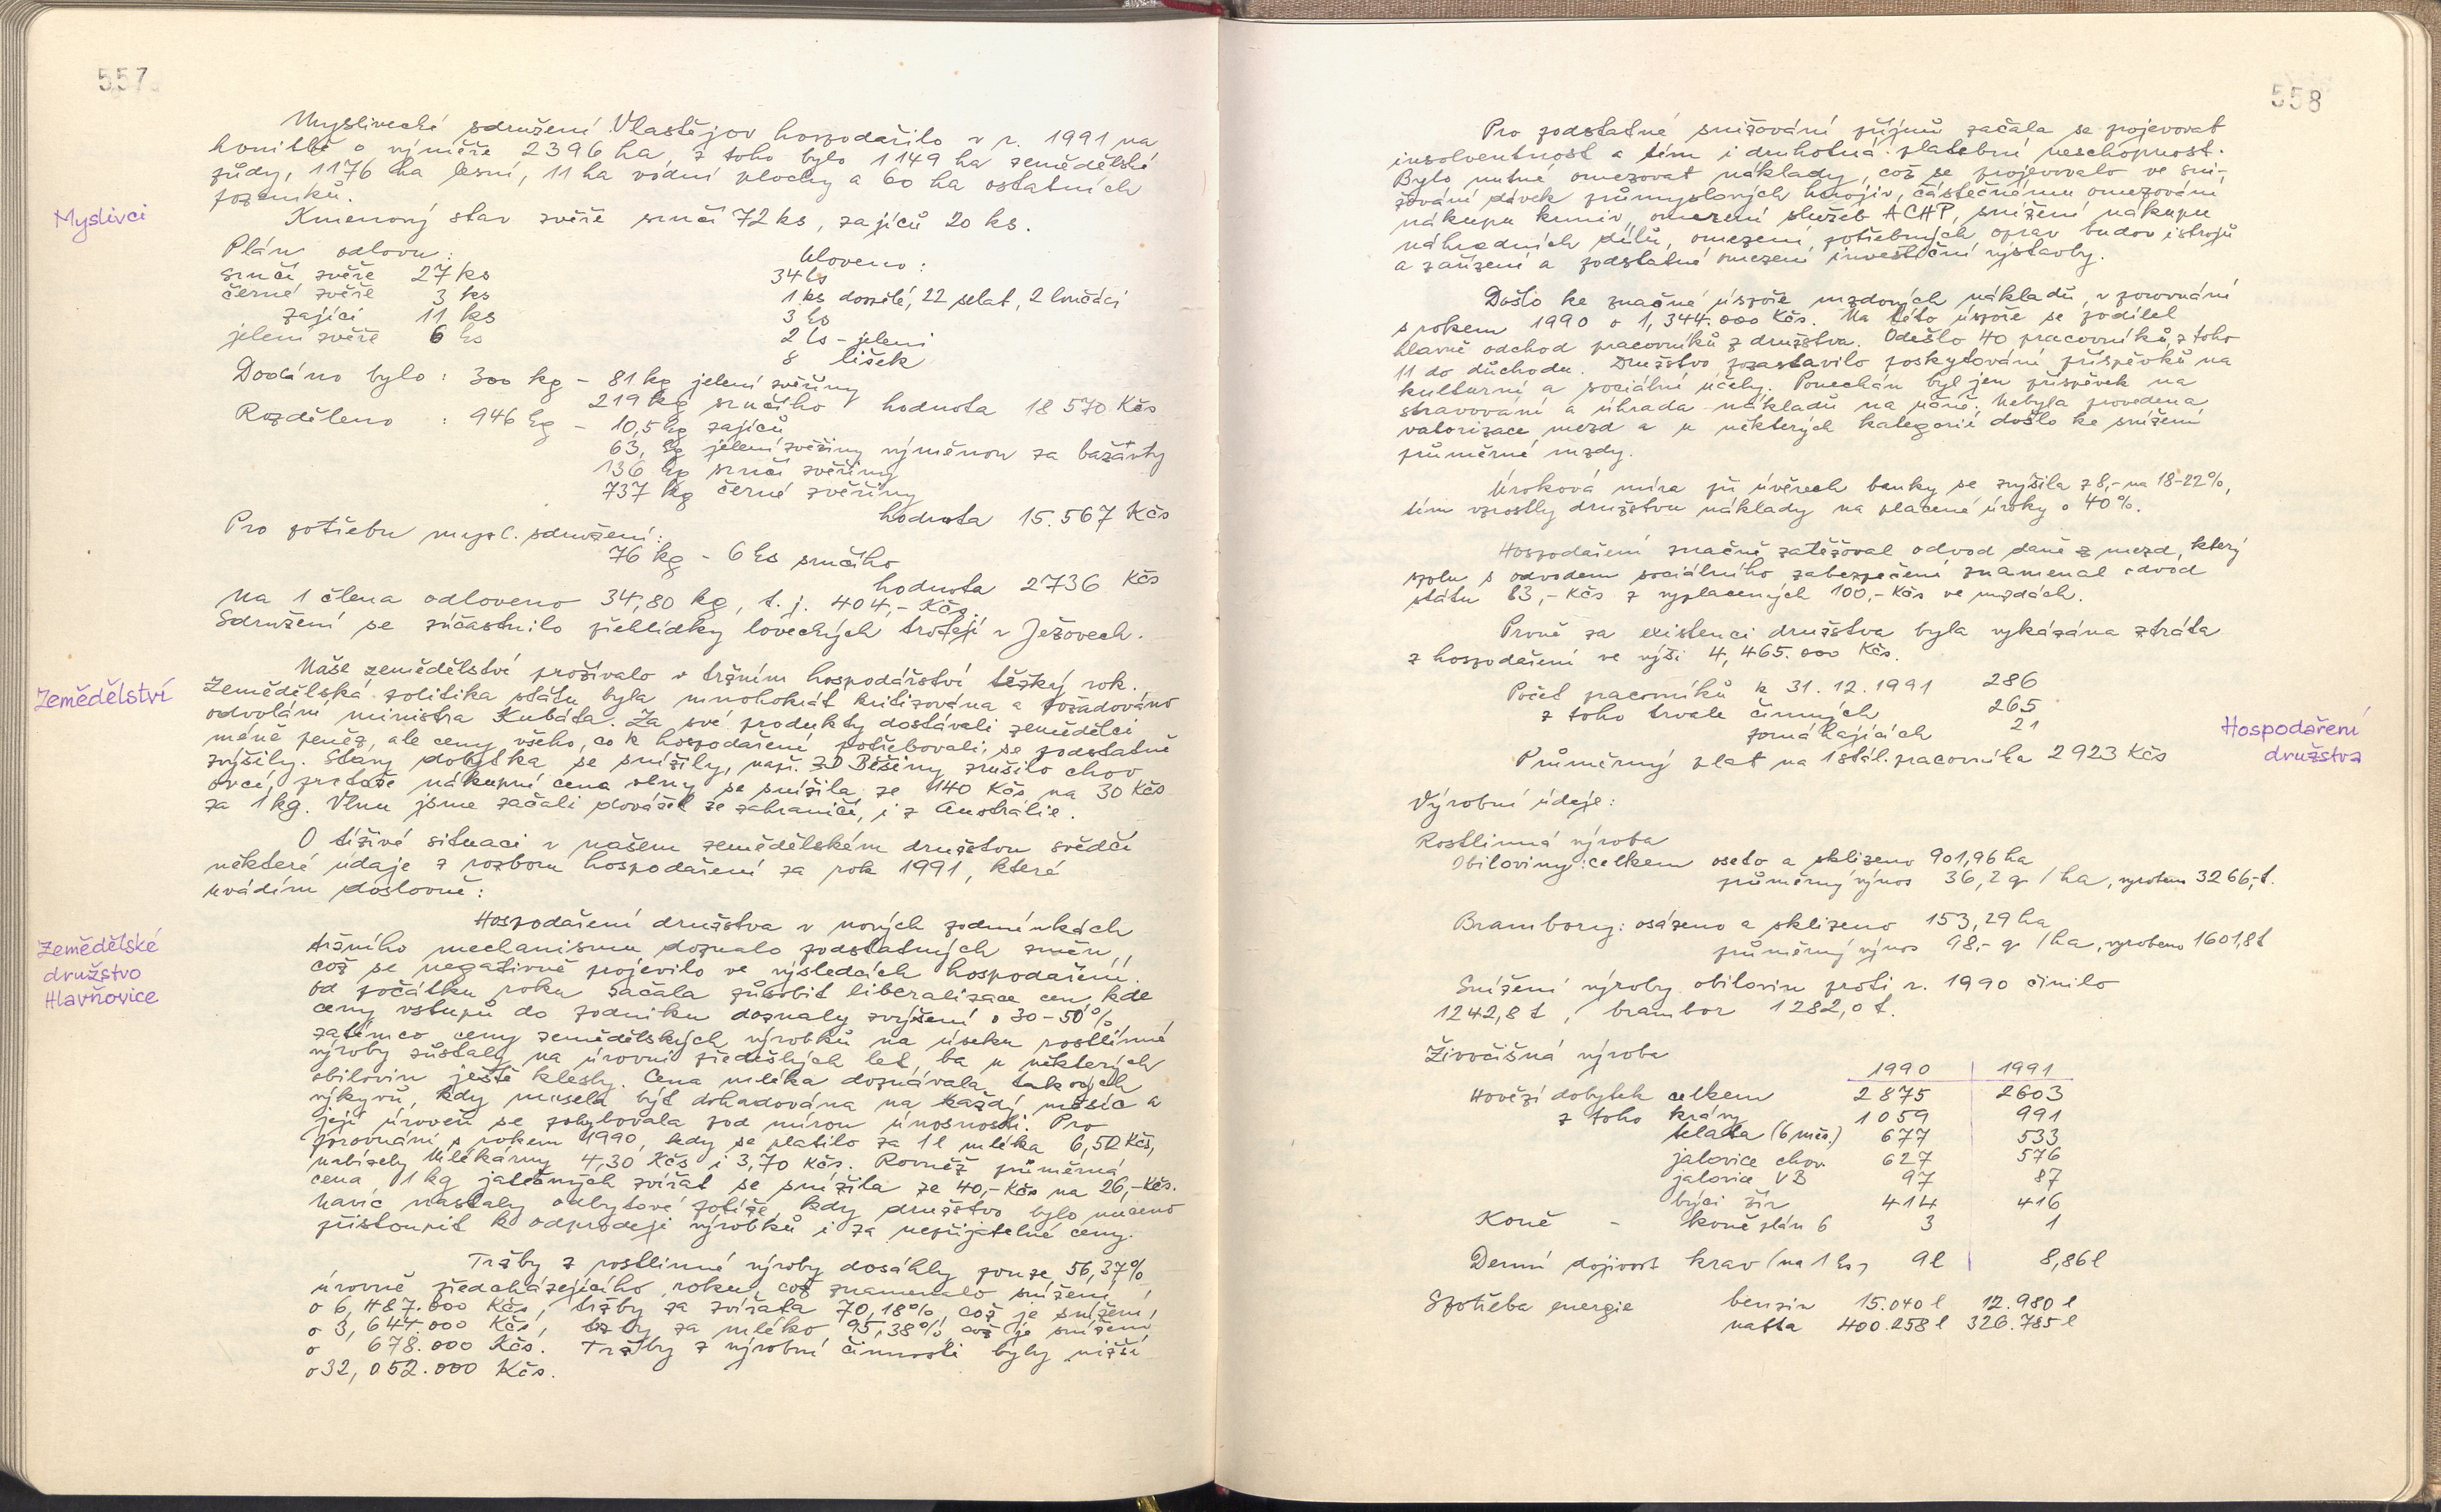 557
Myslivecké sdružení Vlastějov hospodařilo v r. 1991 na
honitbě o výměře 2396 ha, z toho bylo 1149 ha zemědělské
půdy, 1176 ha lesní, 11 ha vodní plochy a 60 ha ostatních
pozemků.
Myslivci
Kmenový stav zvěře srnčí 72 ks, zajíců 20 ks.
Plán odlovu: Uloveno:
srnčí zvěře 27 ks 34 ks
černé zvěře 3 ks 1 ks dospělé, 22 selat, 2 lončáci
zajíci 11 ks 3 ks
jelení zvěře 6 ks 2 ks - jeleni
8 lišek
Dodáno bylo: 300 kg - 81 kg jelení zvěřiny
219 kg srnčího hodnota 18 570 Kčs
Rozděleno : 946 kg - 10,5 kg zajíců
63, kg jelení zvěřiny výměnou za bažanty
136 kg srnčí zvěřiny
737 kg černé zvěřiny
hodnota 15.567 Kčs
Pro potřebu mysl. sdružení:
76 kg - 6 ks srnčího
hodnota 2736 Kčs
Na 1 člena odloveno 34,80 kg, t. j. 404,- Kčs.
Sdružení se zúčastnilo přehlídky loveckých trofejí v Ježovech.
Naše zemědělství prožívalo v tržním hospodářství těžký rok.
Zemědělství
Zemědělská politika státu byla mnohokrát kritizována a požadováno
odvolání ministra Kubáta. Za své produkty dostávali zemědělci
méně peněz, ale ceny všeho, co k hospodaření potřebovali, se podstatně
zvýšily. Stavy dobytka se snížily, např. ZD Běšiny zrušilo chov
ovcí, protože nákupní cena vlny se snížila ze 140 Kčs na 30 Kčs
za 1 kg. Vlnu jsme začali dovážet ze zahraničí, i z Austrálie.
O tíživé situaci v našem zemědělském družstvu svědčí
některé údaje z rozboru hospodaření za rok 1991, které
uvádím doslovně:
Zemědělské
družstvo
Hlavňovice
Hospodaření družstva v nových podmínkách
tržního mechanismu doznalo podstatných změn,
což se negativně projevilo ve výsledcích hospodaření.
Od počátku roku začala působit liberalizace cen, kde
ceny vstupů do podniku doznaly zvýšení o 30-50%,
zatímco ceny zemědělských výrobků na úseku rostlinné
výroby zůstaly na úrovni předešlých let, ba u některých
obilovin ještě klesly. Cena mléka doznávala takových
výkyvů, kdy musela být dohadována na každý měsíc a
její úroveň se pohybovala pod mírou únosnosti. Pro
porovnání s rokem 1990, kdy se platilo za 1 l mléka 6,52 Kčs,
nabízely Mlékárny 4,30 Kčs i 3,70 Kčs. Rovněž průměrná
cena 1 kg jatečných zvířat se snížila ze 40,- Kčs na 26,- Kčs.
Navíc nastaly odbytové potíže, kdy družstvo bylo nuceno
přistoupit k odprodeji výrobků i za nepřijatelné ceny.
Tržby z rostlinné výroby dosáhly pouze 56,37%
úrovně předcházejícího roku, což znamenalo snížení
o 6,487.000 Kčs, tržby za zvířata 70,18%, což je snížení
o 3,647.000 Kčs, tržby za mléko 95,38%, což je snížení
o 678.000 Kčs. Tržby z výrobní činnosti byly nižší
o 32,052.000 Kčs.
558
Pro podstatné snižování příjmů začala se projevovat
insolventnost a tím i druhotná platební neschopnost.
Bylo nutné omezovat náklady, což se projevovalo ve sni-
žování dávek průmyslových hnojiv, částečnému omezování
nákupu krmiv, omezení služeb ACHP, snížení nákupu
náhradních dílů, omezení potřebných oprav budov i strojů
a zařízení a podstatné omezení investiční výstavby.
Došlo ke značné úspoře mzdových nákladů, v porovnání
s rokem 1990 o 1,344.000 Kčs. Na této úspoře se podílel
hlavně odchod pracovníků z družstva. Odešlo 40 pracovníků, z toho
11 do důchodu. Družstvo pozastavilo poskytování příspěvků na
kulturní a sociální účely. Ponechán byl jen příspěvek na
stravování a úhrada nákladů na učně. Nebyla provedena
valorizace mezd a u některých kategorií došlo ke snížení
průměrné mzdy.
Úroková míra při úvěrech banky se zvýšila z 8,- na 18-22%,
tím vzrostly družstvu náklady na placené úroky o 40%.
Hospodaření značně zatěžoval odvod daně z mezd, který
spolu s odvodem sociálního zabezpečení znamenal odvod
státu 83,- Kčs z vyplacených 100,- Kčs ve mzdách.
Prvně za existenci družstva byla vykázána ztráta
z hospodaření ve výši 4,465.000 Kčs.
Počet pracovníků k 31.12.1991 286
z toho trvale činných 265
pomáhajících 21
Hospodaření
družstva
Průměrný plat na 1 stál. pracovníka 2 923 Kčs
Výrobní údaje:
Rostlinná výroba
Obiloviny: celkem oseto a sklizeno 901,96 ha
průměrný výnos 36,2 q / ha, vyrobeno 3266,-t.
Brambory: osázeno a sklizeno 153,29 ha
průměrný výnos 98,- q /ha, vyrobeno 1601,8 t
Snížení výroby obilovin proti r. 1990 činilo
1242,8 t, brambor 1282,0 t.
Živočišná výroba
1990 1991
Hovězí dobytek celkem 2 875 2603
z toho krávy 1 059 991
telata (6 měs.) 677 533
jalovice chov. 627 576
jalovice VB 97 87
býci žír 414 416
Koně - koně plán 6 3 1
Denní dojivost krav (na 1 ks) 9 l 8,86 l
Spotřeba energie benzin 15.040 l 12.980 l
nafta 400.258 l 326.785 l